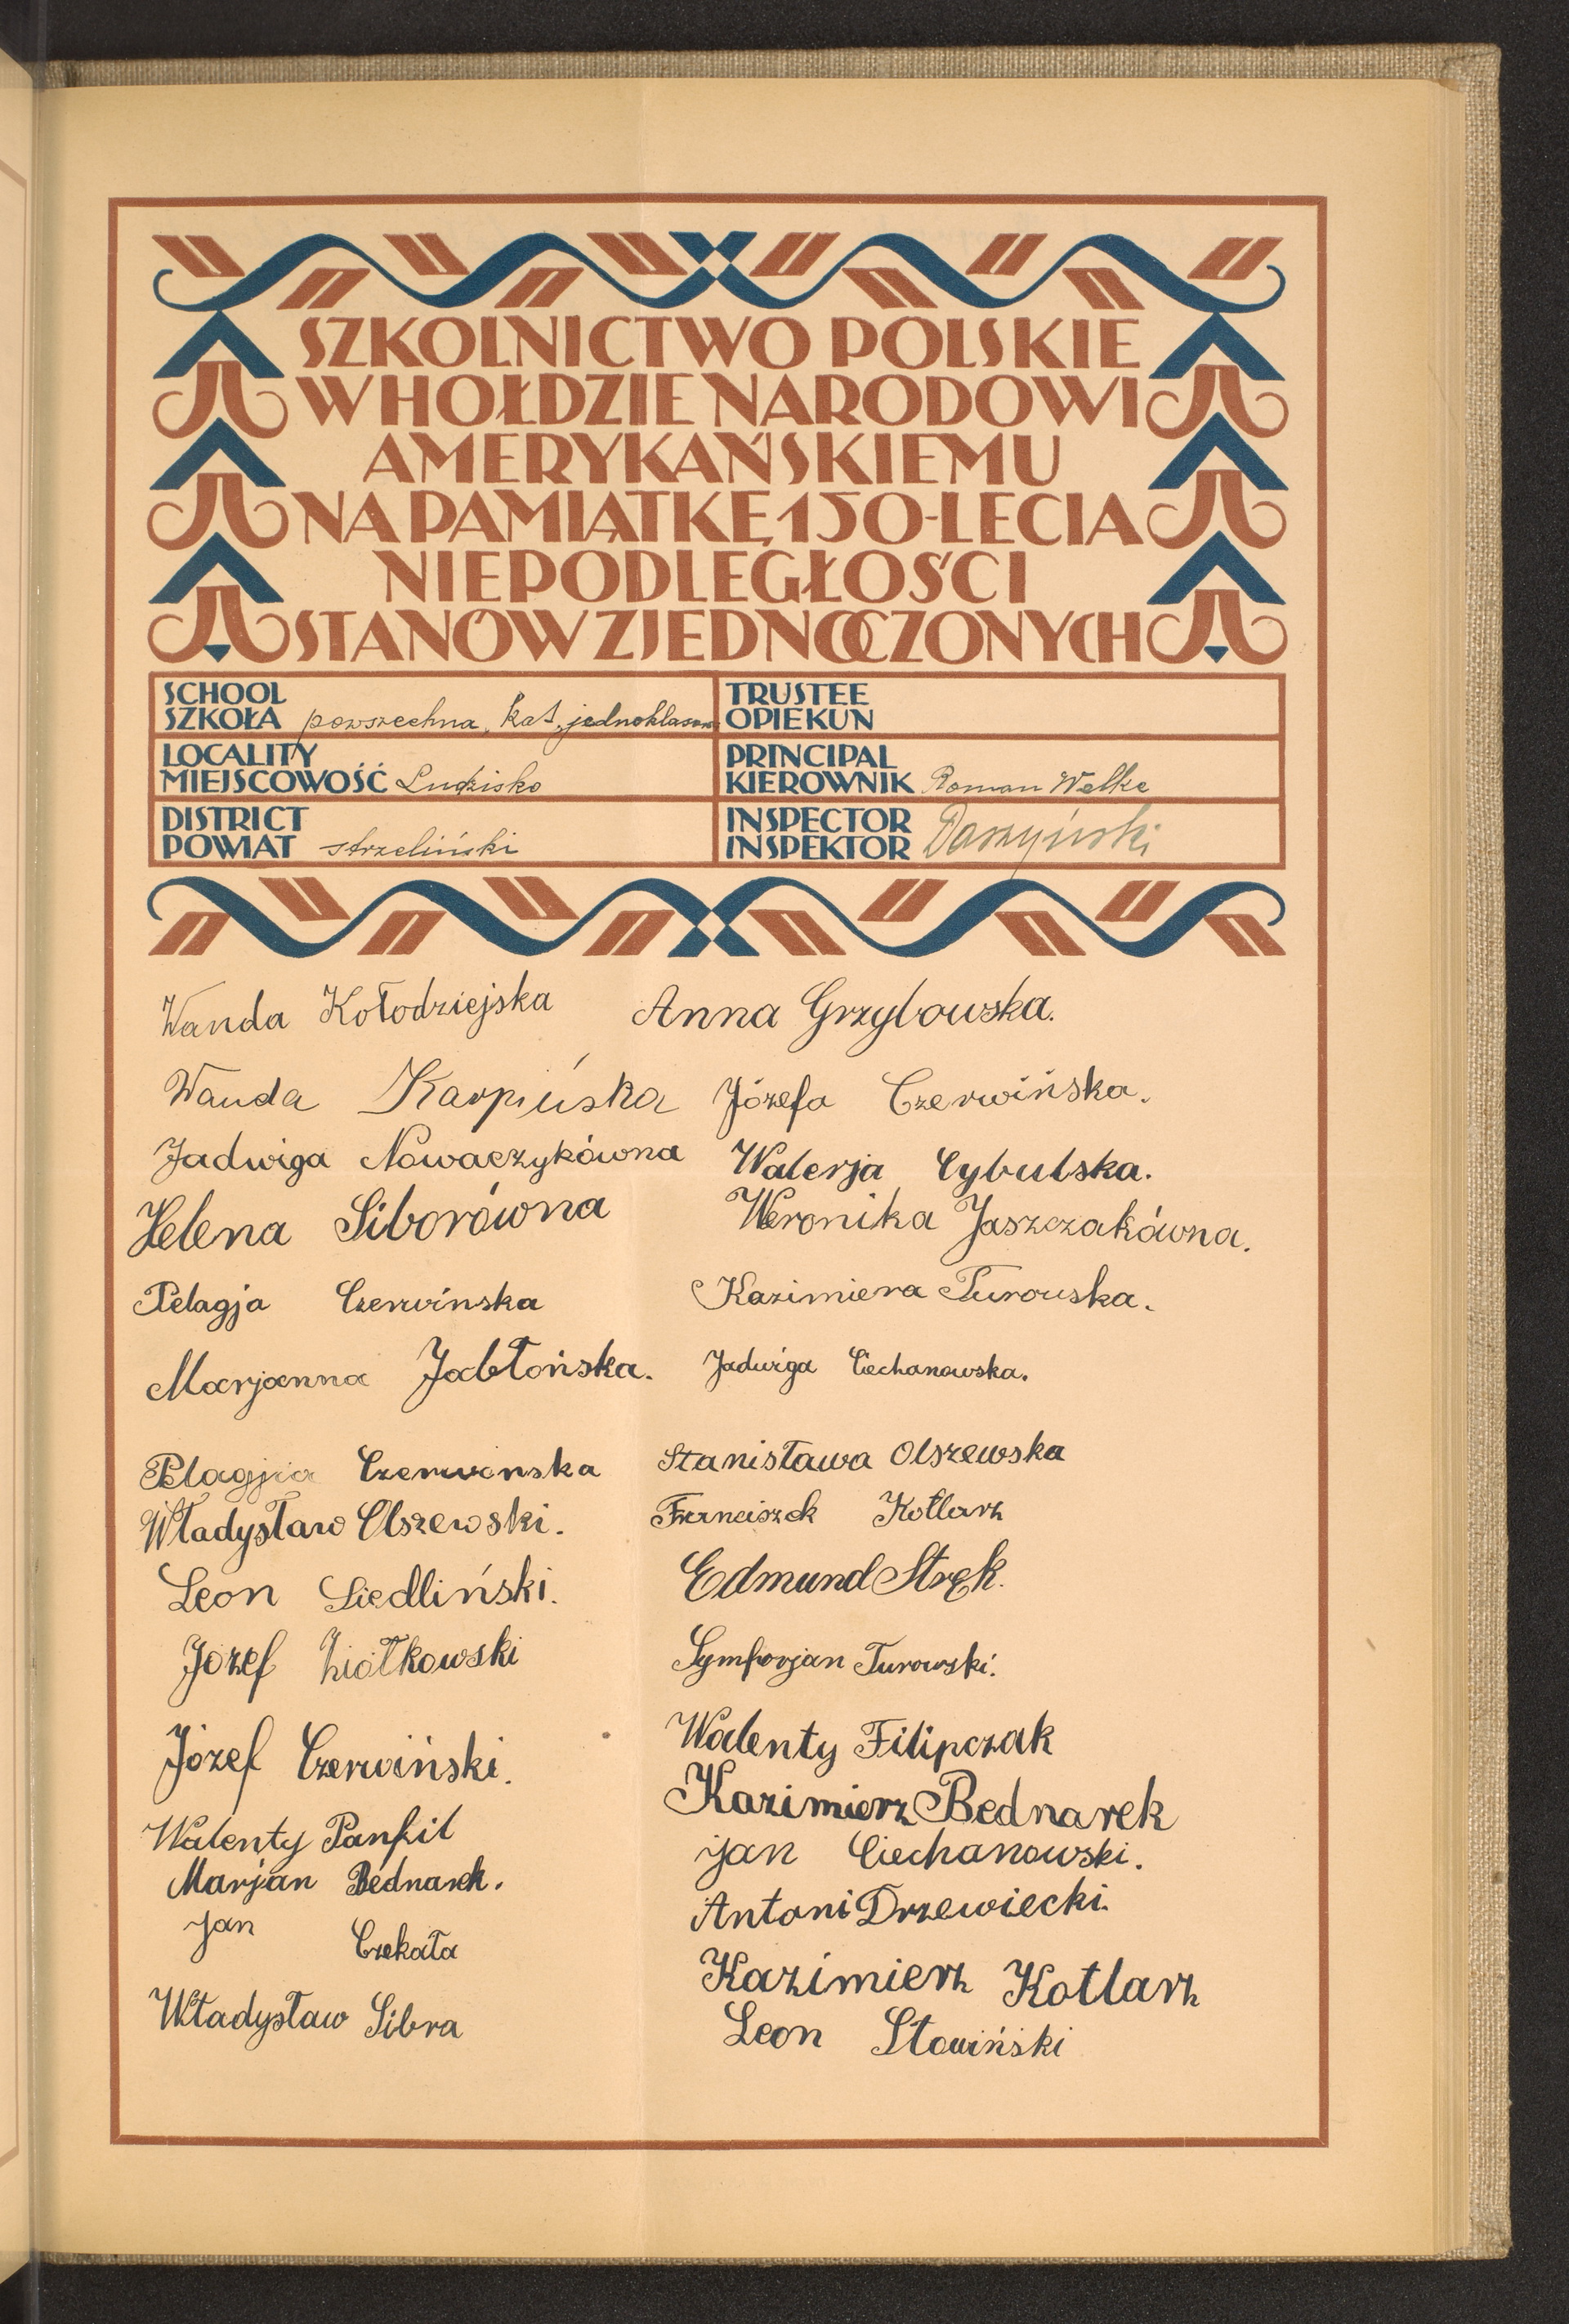 SZKOLNICTWO POLSKIE
W HOŁDZIE NARODOWI
AMERYKAŃSKIEMU
NA PAMIĄTKĘ 150-LECIA
NIEPODLEGŁOŚCI
STANÓW ZJEDNOCZONYCH
SCHOOL
SZKOŁA powszechna, kat. jednoklasowa
TRUSTEE
OPIEKUN
LOCALITY
MIEJSCOWOŚĆ Ludzisko
PRINCIPAL
KIEROWNIK Roman Welke
DISTRICT
POWIAT strzeliński
INSPECTOR
INSPEKTOR Daszyński
Wanda Kołodziejska Anna Grzybowska.
Wanda Karpińska Józefa Czerwińska.
Jadwiga Nowaczykówna Walerja Cybulska.
Helena Siborówna Weronika Jaszczakówna.
Pelagja Czerwińska Kazimiera Turowska.
Marjanna Jabłońska. Jadwiga Ciechanowska.
Pelagjia Czerwinska Stanisława Olszewska
Władysław Olszewski. Franciszek Kotlarz
Leon Siedliński. Edmund Stręk.
Józef Ziółkowski Symforjan Turowski.
Józef Czerwiński. Walenty Filipczak
Walenty Panfil Kazimierz Bednarek
Marjan Bednarek. Jan Ciechanowski.
Jan Czekała Antoni Drzewiecki.
Władysław Sibra Kazimierz Kotlarz
Leon Słowiński